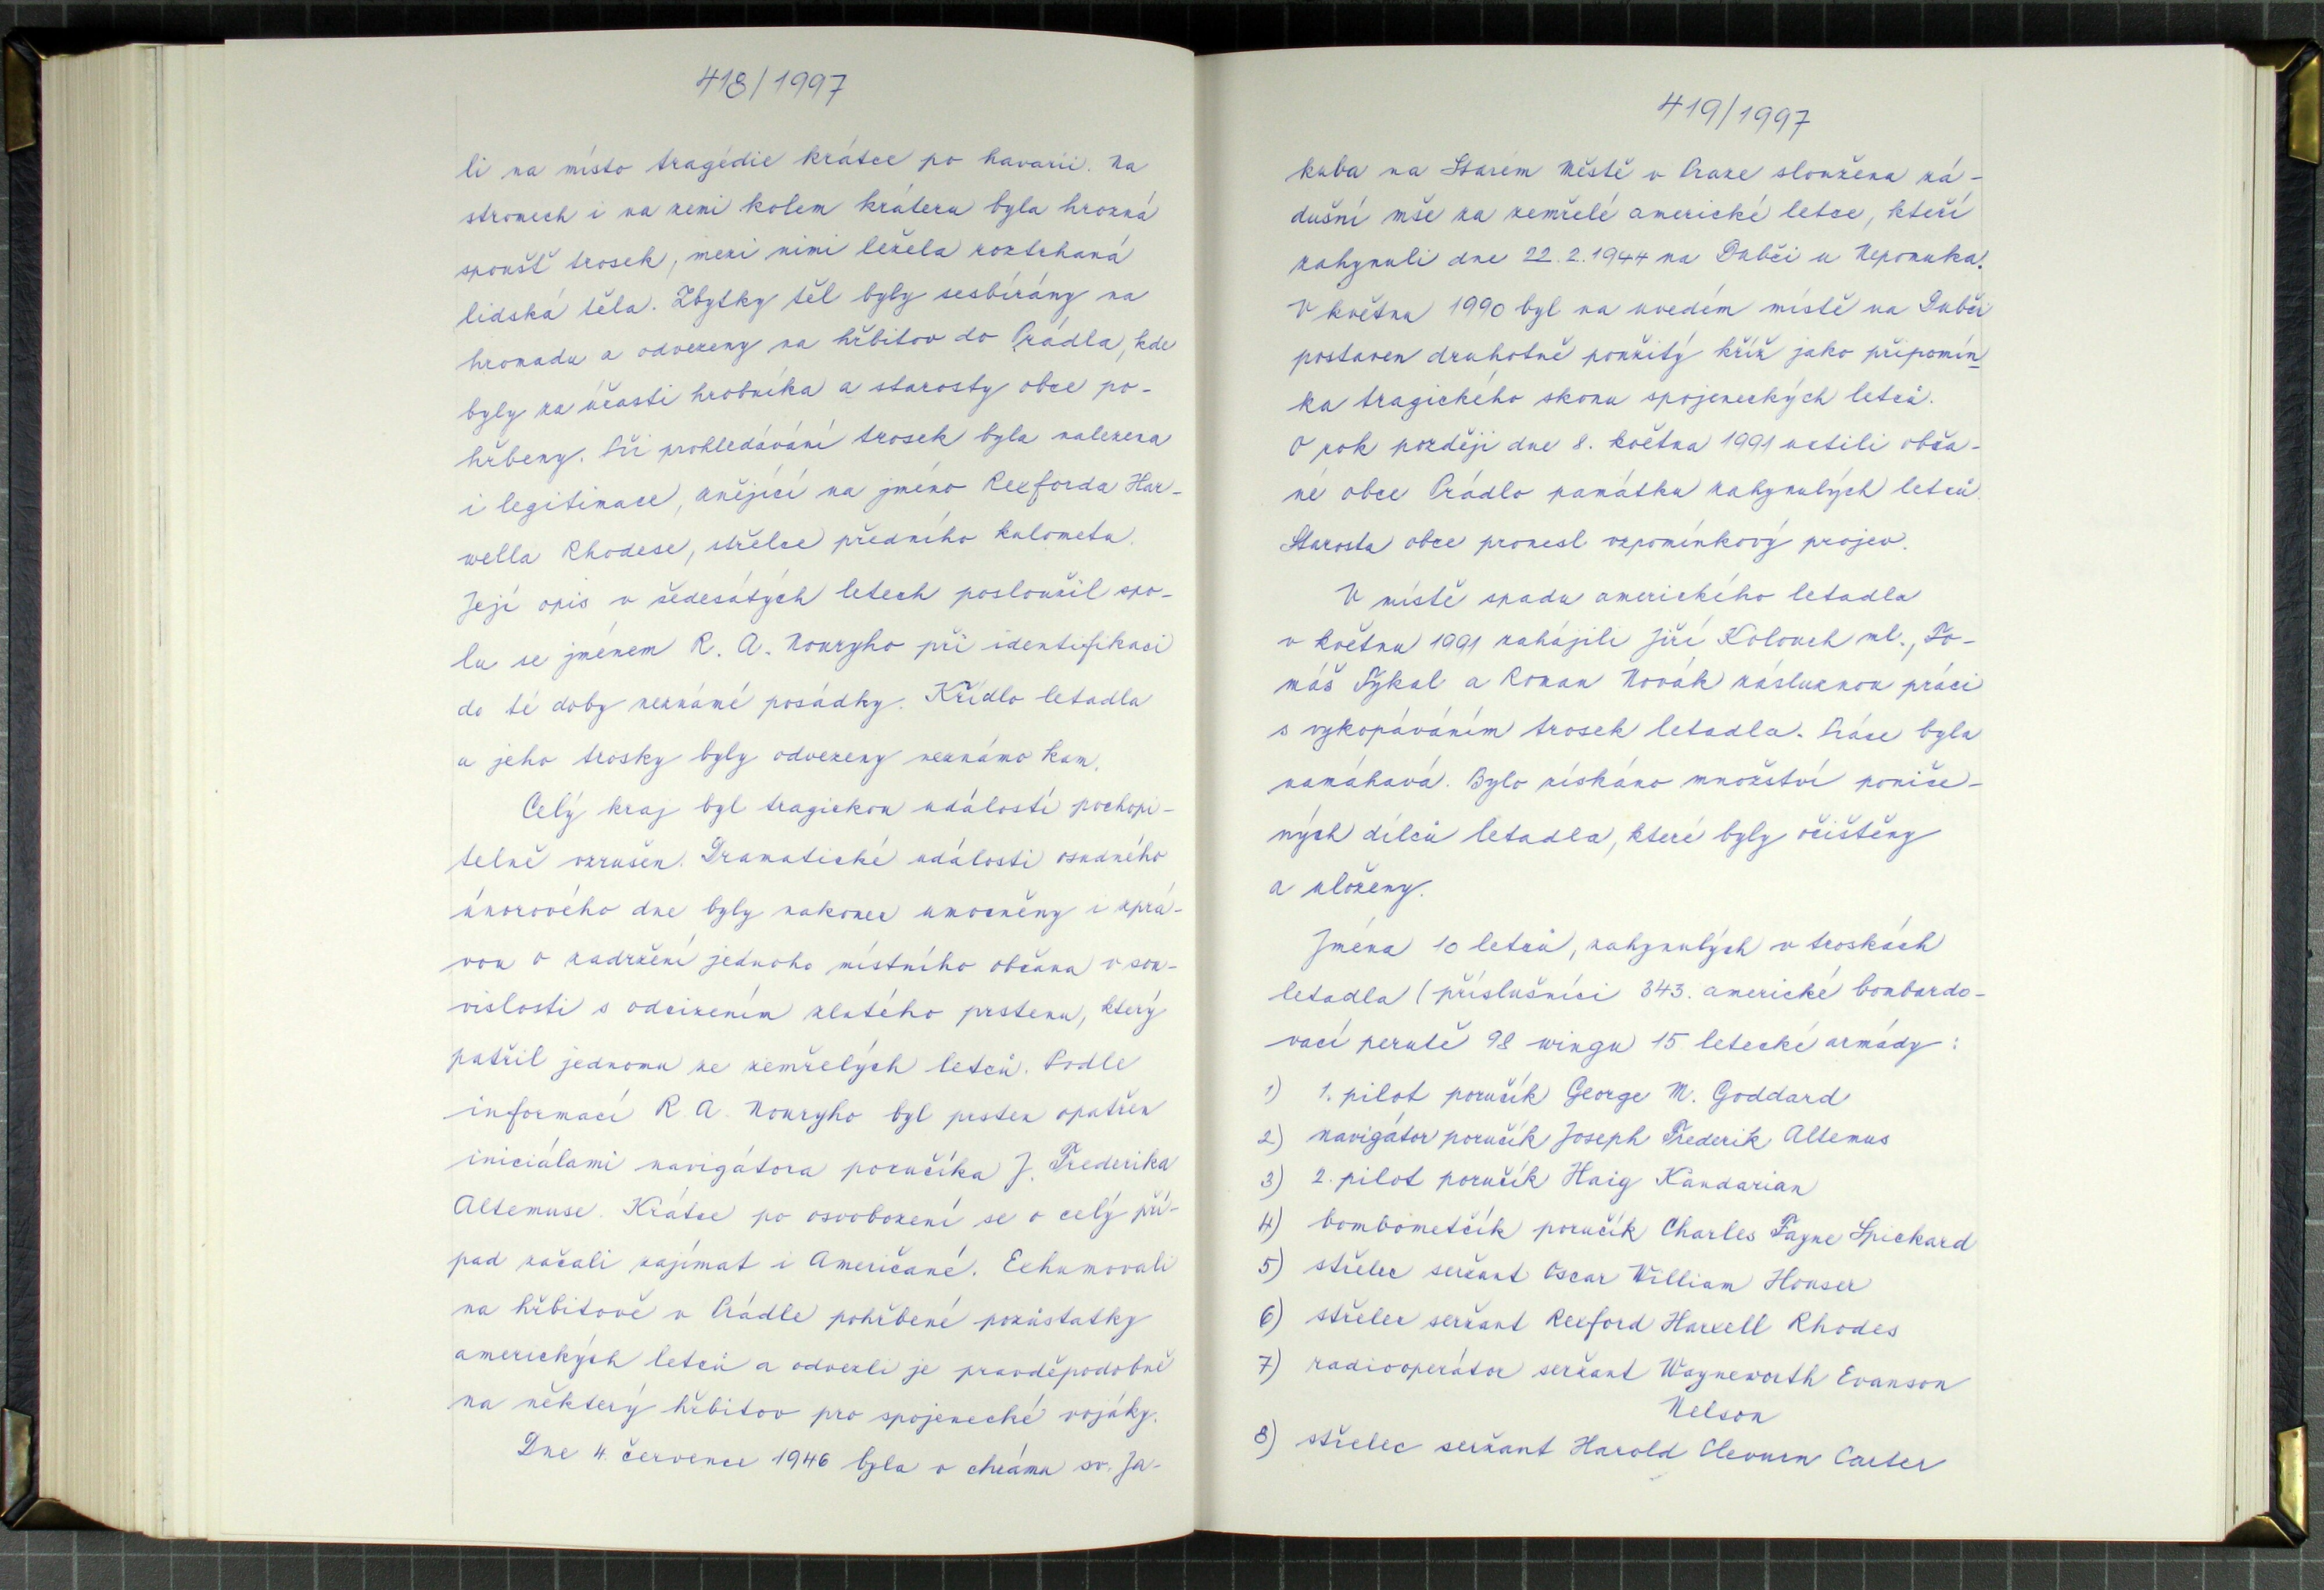 418/1997
li na místo tragédie krátce po havarii. Na
stromech i na zemi kolem kráteru byla hrozná
spoušť trosek, mezi nimi ležela roztrhaná
lidská těla. Zbytky těl byly sesbírány na
hromadu a odvezeny na hřbitov do Prádla, kde
byly za účasti hrobníka a starosty obce po-
hřbeny. Při prohledávání trosek byla nalezena
i legitimace, znějící na jméno Rexforda Har-
wella Rhodese, střelce předního kulometu.
Její opis v šedesátých letech posloužil spo-
lu se jménem R. A. Nouryho při identifikaci
do té doby neznámé posádky. Křídlo letadla
a jeho trosky byly odvezeny neznámo kam.
Celý kraj byl tragickou událostí pochopi-
telně vzrušen. Dramatické události osudného
únorového dne byly nakonec umocněny i zprá-
vou o zadržení jednoho místního občana v sou-
vislosti s odcizením zlatého prstenu, který
patřil jednomu ze zemřelých letců. Podle
informací R. A. Nouryho byl prsten opatřen
iniciálami navigátora poručíka J. Frederika
Altemuse. Krátce po osvobození se o celý pří-
pad začali zajímat i Američané. Exhumovali
na hřbitově v Prádle pohřbené pozůstatky
amerických letců a odvezli je pravděpodobně
na některý hřbitov pro spojenecké vojáky.
Dne 4. července 1946 byla v chrámu sv. Ja-
419/1997
kuba na Starém Městě v Praze sloužena zá-
dušní mše za zemřelé americké letce, kteří
zahynuli dne 22.2.1944 na Dubči u Nepomuka.
V květnu 1990 byl na uvedém místě na Dubči
postaven druhotně použitý kříž jako připomín
ka tragického skonu spojeneckých letců.
O rok později dne 8. května 1991 uctili obča-
né obce Prádlo památku zahynulých letců.
Starosta obce pronesl vzpomínkový projev.
V místě spadu amerického letadla
v květnu 1991 zahájili Jiří Kolouch ml., To-
máš Tykal a Roman Novák záslužnou práci
s vykopáváním trosek letadla. Práce byla
namáhavá. Bylo získáno množství poniče-
ných dílců letadla, které byly očištěny
a uloženy.
Jména 10 letců, zahynulých v troskách
letadla (příslušníci 343. americké bombardo-
vací perutě 98 wingu 15 letecké armády:
1) 1. pilot poručík George M. Goddard
2) navigátor poručík Joseph Frederik Altemus
3) 2. pilot poručík Haig Kandarian
4) bombometčík poručík Charles Fayne Spickard
5) střelec seržant Oscar William Houser
6) střelec seržant Rexford Harxell Rhodes
7) radiooperátor seržant Wayneworth Evanson
Nelson
8) střelec seržant Harold Clevurn Carter